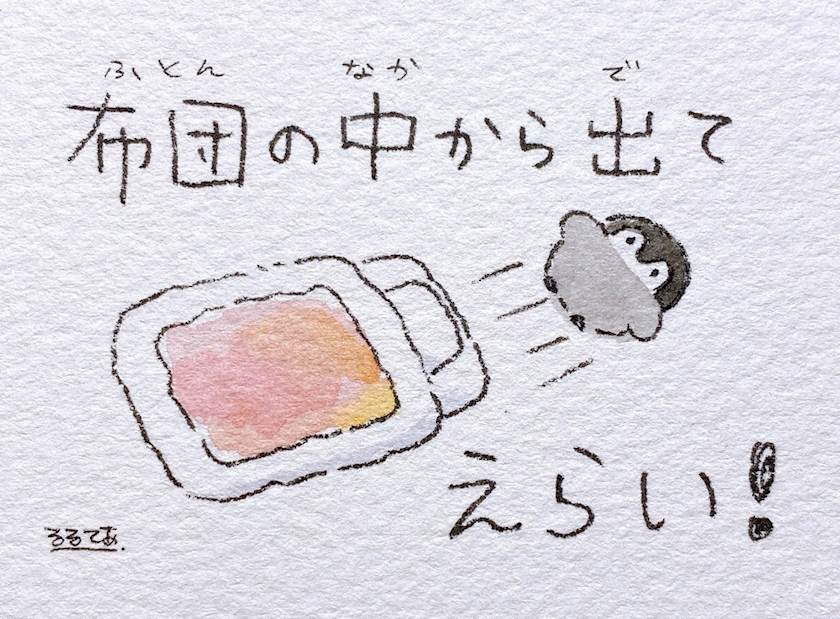 ふとん なか で
布団の中から出て
えらい!
るるてあ.